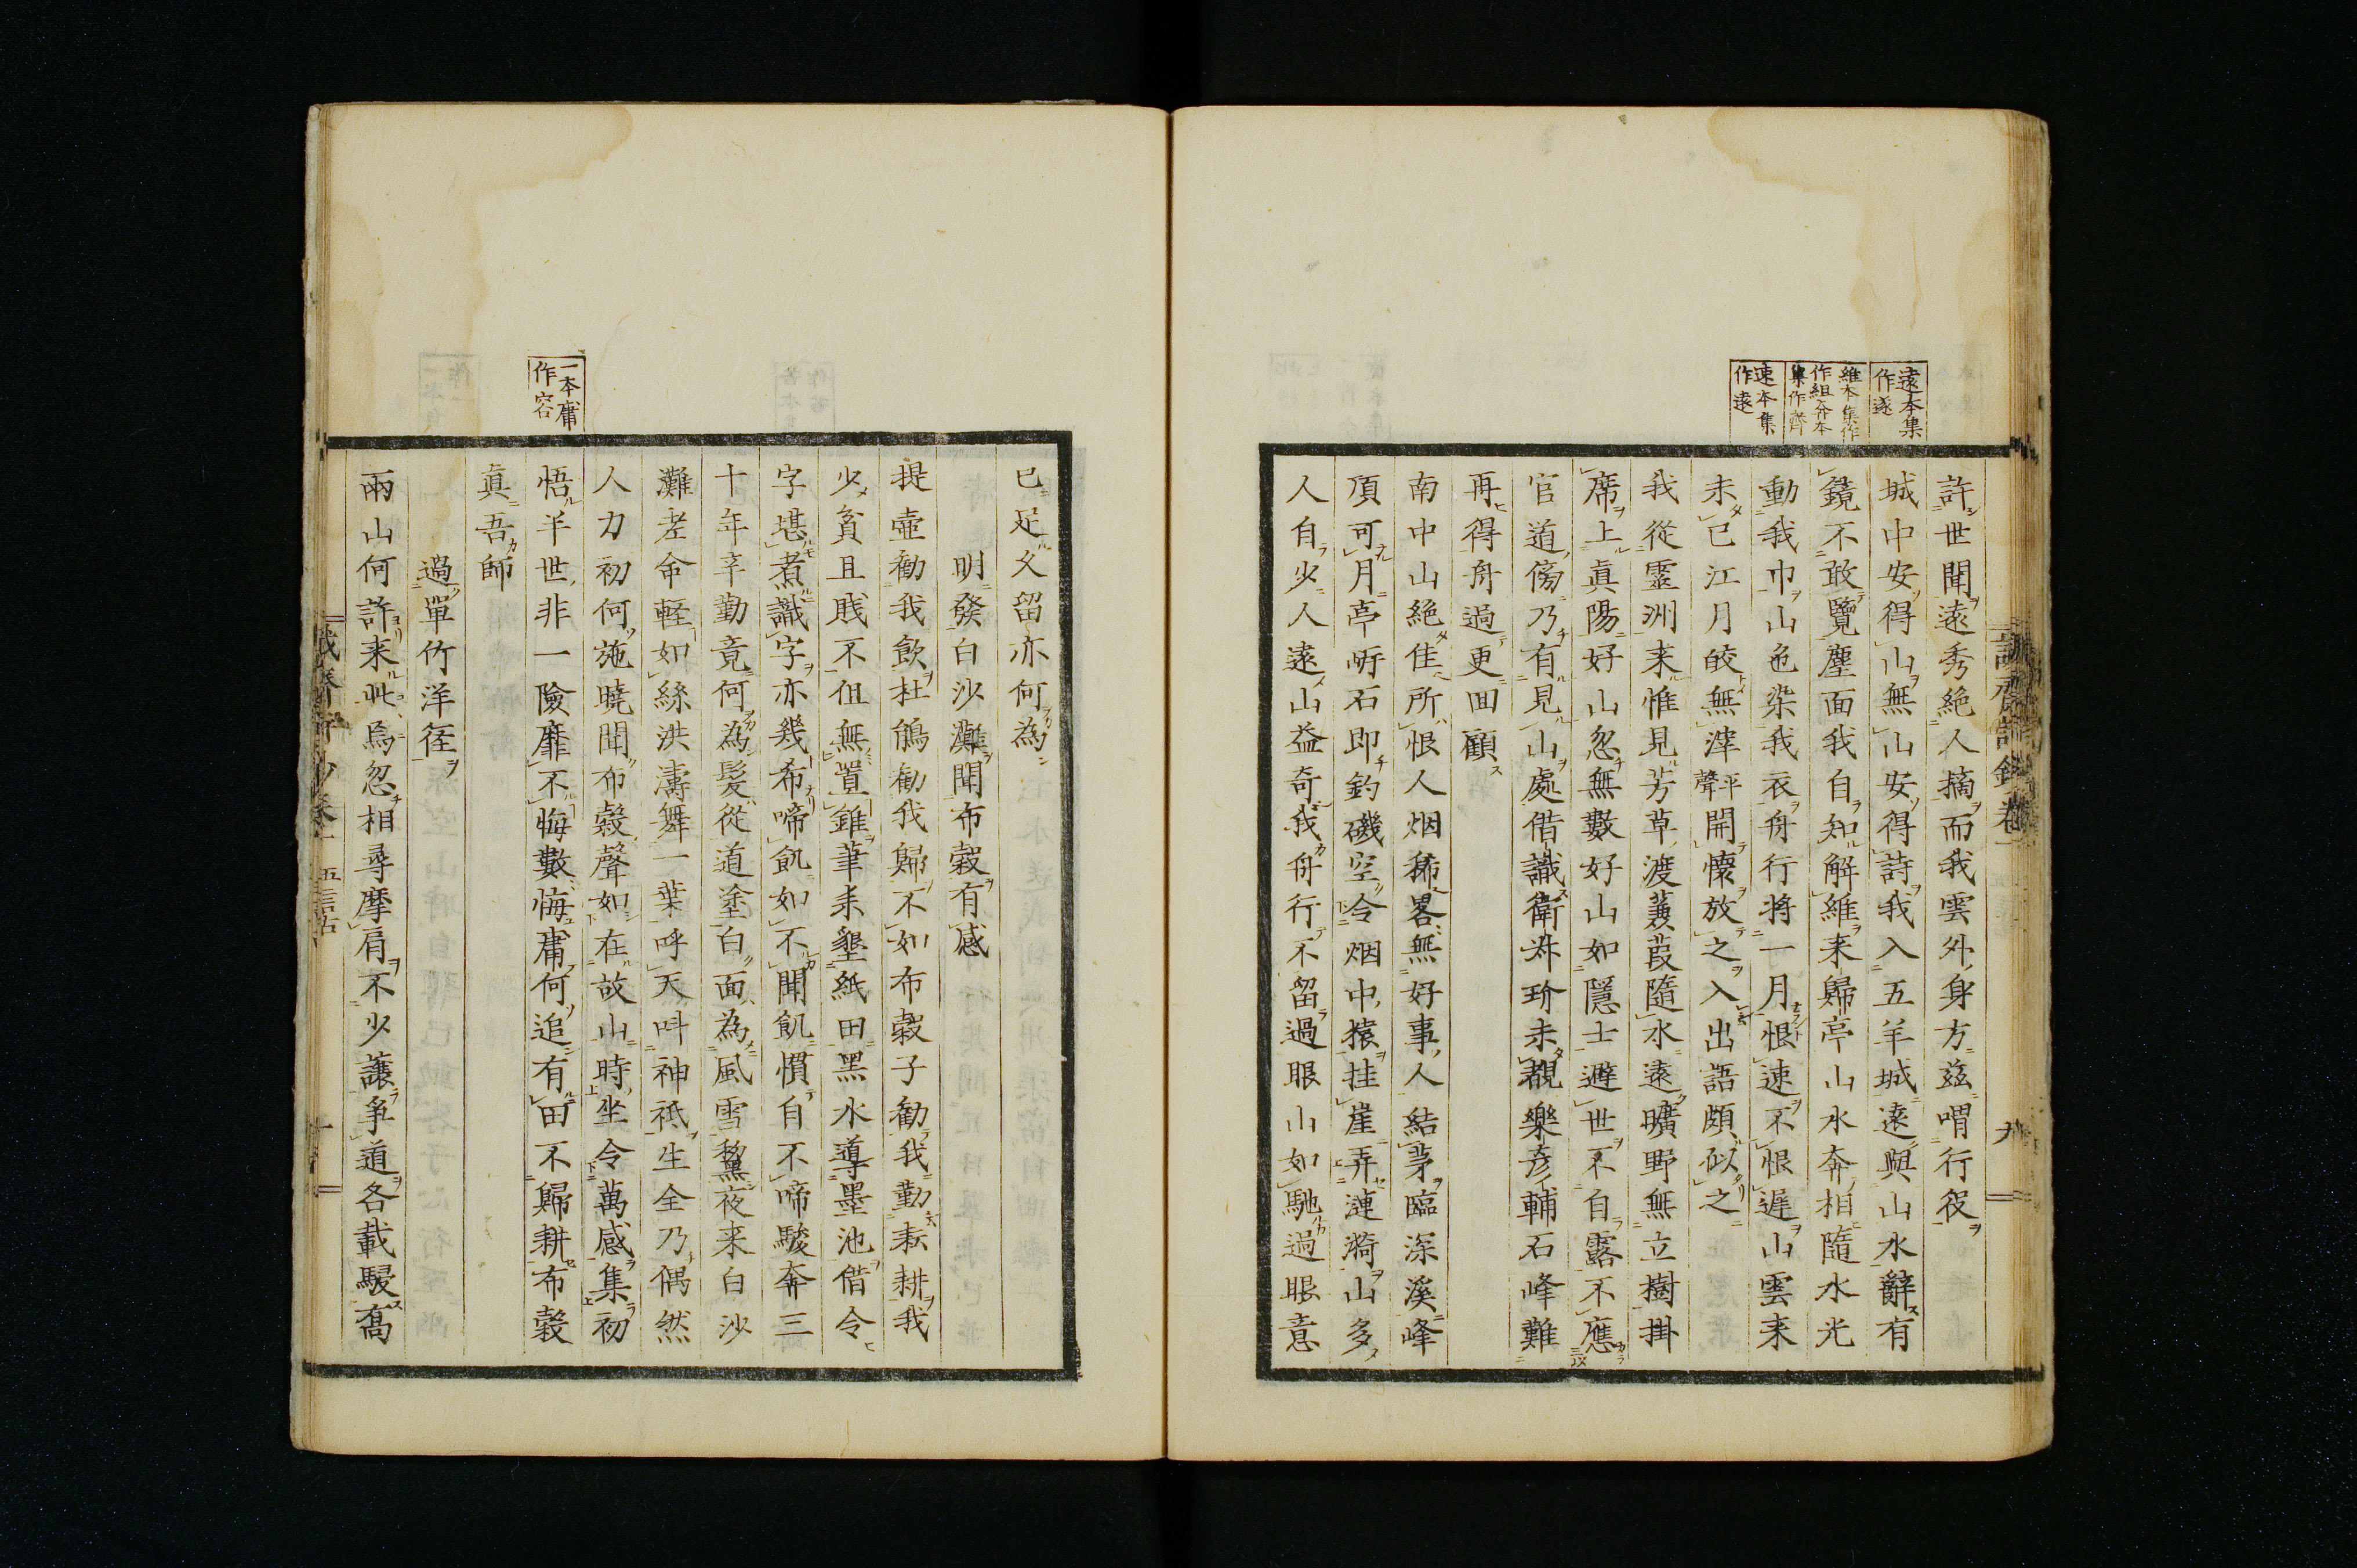 遠本集
作遂
維本集作
作組奔本
集作齊
速本集
作遠
許世聞遠秀絶人摘而我雲外身方兹喟行役
城中安得山無山安得詩我入五羊城遠與山水辭有
鏡不敢覽塵面我自知解維来歸亭山水奔相隨水光
動我巾山色染我衣舟行将一月恨速不恨遲山雲来
未已江月皎無滓平聲開懷放之入出語頗似之
我從靈洲来惟見芳草渡蒹葭隨水遠曠野無立樹掛
席上真陽好山忽無數好山如隱士避世不自露不應
官道傍乃有見山處借識衛叔玠未覩樂彦輔石峰難
再得舟過更回顧
南中山絶佳所恨人烟稀畧無好事人結茅臨深溪峰
頂可月亭岍石即釣磯空令烟中猿挂崖弄漣漪山多
人自少人遠山益奇我舟行不留過眼山如馳過眼意
一本庸
作容
已足久留亦何為
明發白沙灘聞布穀有感
提壺勸我飲杜鵑勸我歸不如布穀子勸我勤耘耕我
少貧且賎不但無置錐筆耒墾紙田黑水導墨池借令
字堪煮識字亦幾希啼飢如不聞飢慣自不啼駿奔三
十年辛勤竟何為髮從道塗白面為風雪黧夜来白沙
灘老命軽如絲洪濤舞一葉呼天呌神祗生全乃偶然
人力初何施曉聞布穀聲如在故山時坐令萬感集初
悟半世非一險靡不悔數悔庸何追有田不歸耕布穀
真吾師
過單竹洋徑
兩山何許来此焉忽相尋摩肩不少讓爭道各載駸喬